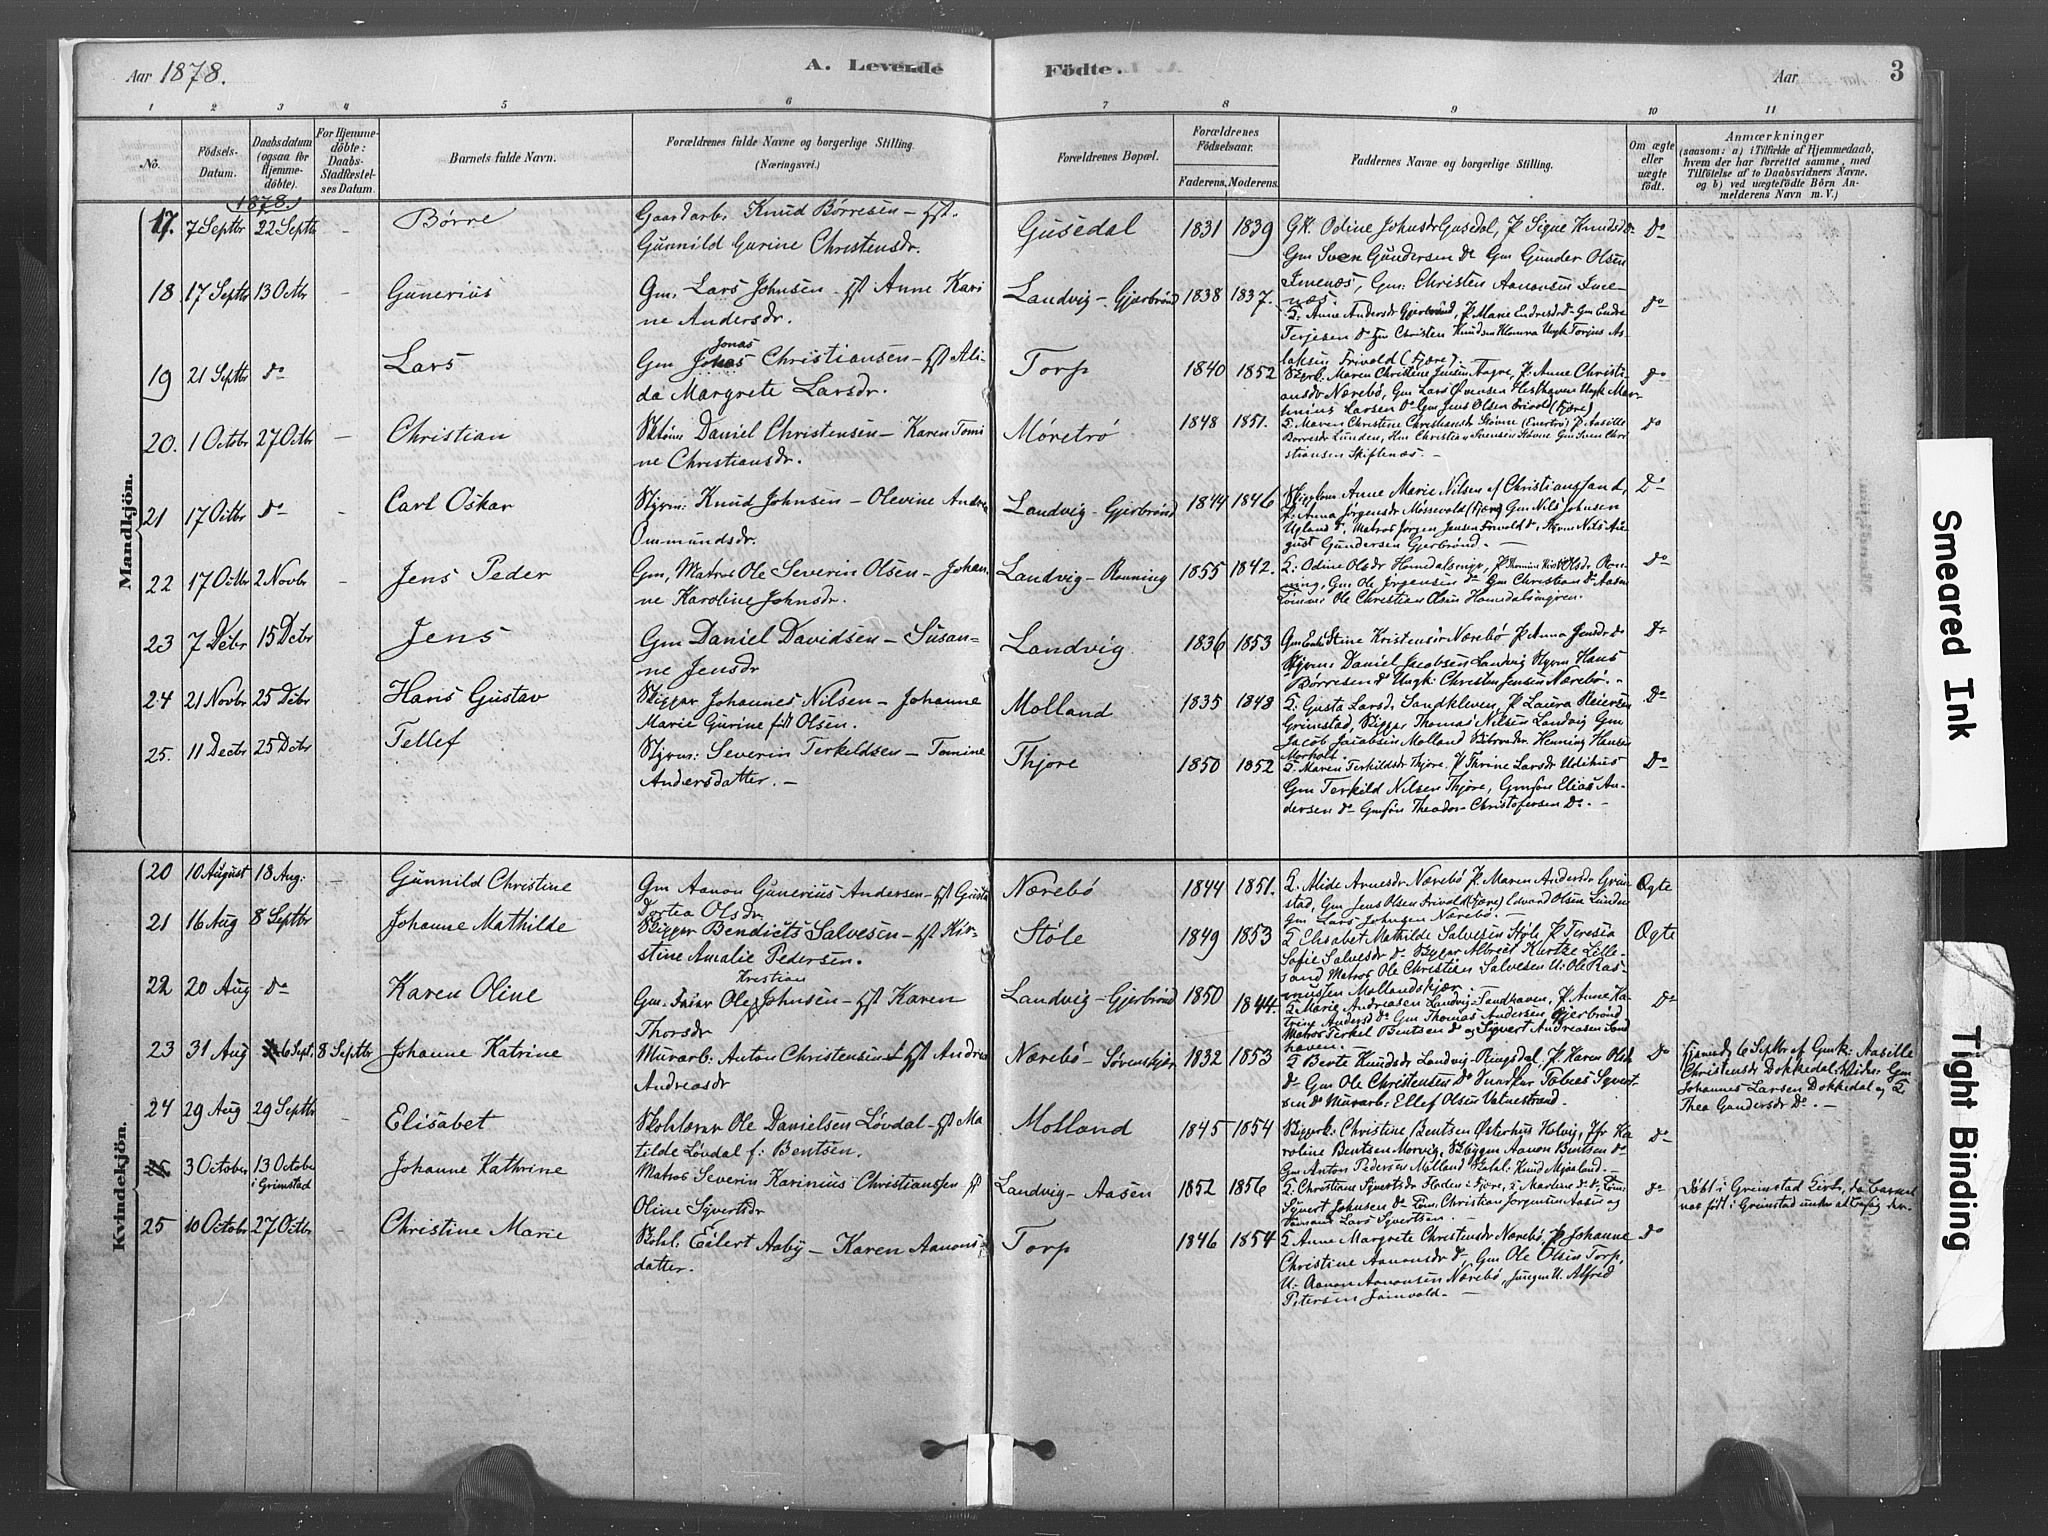 Aar 1878.
A. Levende Födte.
Aar
3
1 2 3 4 5 6 7 8 9 10 11
No.
Födsels-
Datum.
Daabsdatum
(ogsaa for
Hjemme-
döbte).
For Hjemme-
döbte:
Daabs-
Stadfæstel-
ses Datum.
Barnets fulde Navn.
Forældrenes fulde Navne og borgerlige Stilling.
(Næringsvei.)
Forældrenes Bopæl.
Forældrenes
Födselsaar.
Faderens. Moderens.
Faddernes Navne og borgerlige Stilling.
Om ægte
eller
uægte
födt.
Anmærkninger
(saasom: a) i Tilfælde af Hjemmedaab,
hvem der har forrettet samme, med
Tilföielse af to Daabsvidners Navne,
og b) ved uægtefödte Börn An-
melderens Navn m. V.)
Mandkjön.
1878.
17. 7 Septbr 22 Septbr - Børre
Gaardarb. Knud Børresen - Hst.
Gunnild Gurine Christensdr.
Gusedal 1831 1839
GK. Odine Johnsdr Gusedal, P. Signe Knudsdr
Gm Sven Gundersen Do Gm Gunder Olsen
Imenæs, Gm: Christen Aanonsen Ime-
næs.
Do
18 17 Septbr 13 Octbr - Gunerius
Gm. Lars Johnsen - Hst Anne Kari
ne Andersdr.
Landvig - Gjerbrønd 1838 1837.
K: Anne Andersdr Gjerbrønd, P. Marie Endresdr Do Gm Endre
Terjesen Do Gm Christen Knudsen Klomra Ungk Torjus As-
laksen Frivold (Fjære).
Do
19 21 Septbr Do - Lars
Jonas
Gm Christiansen - Hst Ali-
da Margrete Larsdr.
Torp 1840 1852
Maren Christens Jensen Aagre, P: Anne Christi-
ansdr Nærebø, Gm Lars Hesthaven Ungk Mar-
tinius Larsen Do Gm Jens Olsen Frivold (Fjære)
Do
20. 1 Octobr 27 Octbr - Christian
Daniel Christensen - Karen Tomi
ne Christiansdr.
Møretrø 1848 1851.
K. Maren Christine Christiansdr Støvne P Aasille
Børresdr Lunden, Christian Svensen Støvne Gm Sven Chri
stiansen Skiftenæs. -
Do
21 17 Octbr Do - Carl Oskar
Styrm: Knud Johnsen - Olevine Andrea
Ommundsdr.
Landvig - Gjerbrønd 1844 1846
Anne Marie Nilsen af Christianssand,
P: Anna Jørgensdr Møssevold (Fjære) Gm Nils Johnsen
Upland Do, Matros Jørgen Jensen Frivold Do, Nils Au-
gust Gundersen Gjerbrønd. -
Do
22 17 Octbr 2 Novbr - Jens Peder
Gm, Matros Ole Severin Olsen - Johan
ne Karoline Johnsdr.
Landvig - Rønning 1855 1842.
K: Odine Olsdr Homdalsmyr, P. Olsdr Røn-
ning, Gm Ole Jørgensen Do Gm Christian Do Aasen
Tømm: Ole Christian Olsen Homdalsmyren.
Do
23 7 Debr 15 Dcbr Jens
Gm Daniel Davidsen - Susan-
ne Jensdr
Landvig 1836 1853
Stine Kristensdr Nærebø P Anna Jensdr Do
Styrm: Daniel Jacobsen Landvig Styrm Hans
Børresen Do Ungk: Christen Jensen Nærebø. -
Do
24 21 Novbr 25 Debr Hans Gustav
Skipper Johannes Nilsen - Johanne
Marie Gurine født Olsen.
Molland 1835 1848
K: Gusta Larsd. Sandkleven, P. Laura Reiersen
Grimstad, Skipper Thomas Nilsen Landvig Gm
Jacob Jacobsen Molland Henning Hansen
Morholt.
Do
25. 11 Decbr 25 Dcbr Tellef
Styrm: Severin Terkeldsen - Tomine
Andersdatter. -
Thjøre 1850 1852
K: Maren Terkildsdr Thjøre, P Thrine Larsdr Udehus
Gm Terkild Nilsen Thjøre, Gmsøn Elias An-
dersen Do Gmsøn Theodor Christofersen Do. -
Do
Kvindekjön.
20 10 August 18 Aug: - Gunnild Christine
Gm Aanon Gunerius Andersen - Hst Gusta
Dortea Olsdr
Nærebø 1844 1851.
K. Alide Arnesdr Nærebø P. Maren Andersdr Grim
stad, Gm Jens Olsen Frivold (Fjære) Edvard Olsen Lunden
Gm Lars Johnsen Nærebø. -
Ægte
21 16 Aug 8 Septbr Johanne Mathilde
Skipper Bendict Salvesen - Hst Kir-
stine Amalie Pedersen.
Støle 1849 1853
K Elisabet Mathilde Salvesen Støle P Teresia
Sofie Salvesdr Do Skipper Albrect Kurtze Lille-
sand Matros Ole Christian Salvesen U: Ole Ras-
mussen Mollandskjær.
Ægte
22 20 Aug Do Karen Oline
Kristian
Gm. Ole Johnsen - Hst Karen
Thorsdr
Landvig - Gjerbrønd 1850 1844
K Marie Andreasen Landvig-Sandhaven, P Anne Ka-
trine Andersd Do Gm Thomas Andersen Gjerbrønd
Matros Terkel Bentsen Do og Sigvert Andreasen Sand
haven. -
Do
23 31 Aug 6 Sept. 8 Septbr Johanne Katrine
Murarb: Anton Christensen Hst Andrea
Andreasdr
Nærebø - Sørenskjær 1832 1853
K Berte Knudsdr Landvig-Ringsdal, P. Karen Olsdr
Do Gm Ole Christensen Do Snedker Tobies Syvert-
sen Do Murarb: Ellef Olsen Vatnestrand.
Do
Hjemmed. 6 Septbr af Gmk: Aasille
Christensdr Dokkedal, Vidner Gm
Johannes Larsen Dokkedal og K.
Thea Gundersdr Do. -
24 29 Aug 29 Septbr - Elisabet
Skolelærer Ole Danielsen Løvdal - Hst Ma
tilde Løvdal f: Bentsen.
Molland 1845 1854
Skipperk: Christine Bentsen Østerhus Holvig, Jfr Ka
roline Bentsen Morvig, Skipper Aanon Bentsen Do
Gm Anton Pedersen Molland Skolel. Knud Mjaaland. -
Do
3 October 13 Octobr
i Grimstad
Johanne Kathrine
Matros Severin Karinius Christianssen Hst
Oline Syvertsdr
Landvig - Aasen 1852 1856
K: Christiane Syvertsdr Sladen i Fjære, P Marlene do do, Tøm:
Syvert Johnsen Do Tøm: Christian Jørgensen Aasen og
Tømmand Lars Syvertsen.
do
Døbt i Grimstad Kirke, da Barnet
var født i Grimstad
25 10 Octobr 27 Octbr - Christine Marie
Skol: Eilert Aaby - Karen Aanons-
datter.
Torp 1846 1854
K Anne Margrete Christensdr Nærebø, P. Johanne
Christine Aanonsdr Do, Gm Ole Olsen Torp,
U: Aanon Aanonsen Nærebø, Ungm U. Alfred
Petersen Jomvold. -
Do
Smeared Ink
Tight Binding